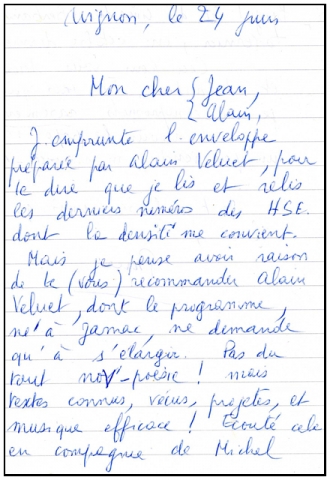 Avignon, le 24 juin
Mon cher { Jean,
{ Alain,
J'emprunte l'enveloppe
préparée par Alain Veluet, pour
te dire que je lis et relis
les derniers numéros des HSE.
dont la densité me convient.
Mais je pense avoir raison
de te (vous) recommander Alain
Veluet, dont le programme,
né à Jarnac, ne demande
qu'à s'élargir. Pas du
tout non-poésie ! mais
textes connus, vécus, projetés, et
musique efficace ! Ecouté cela
en compagnie de Michel